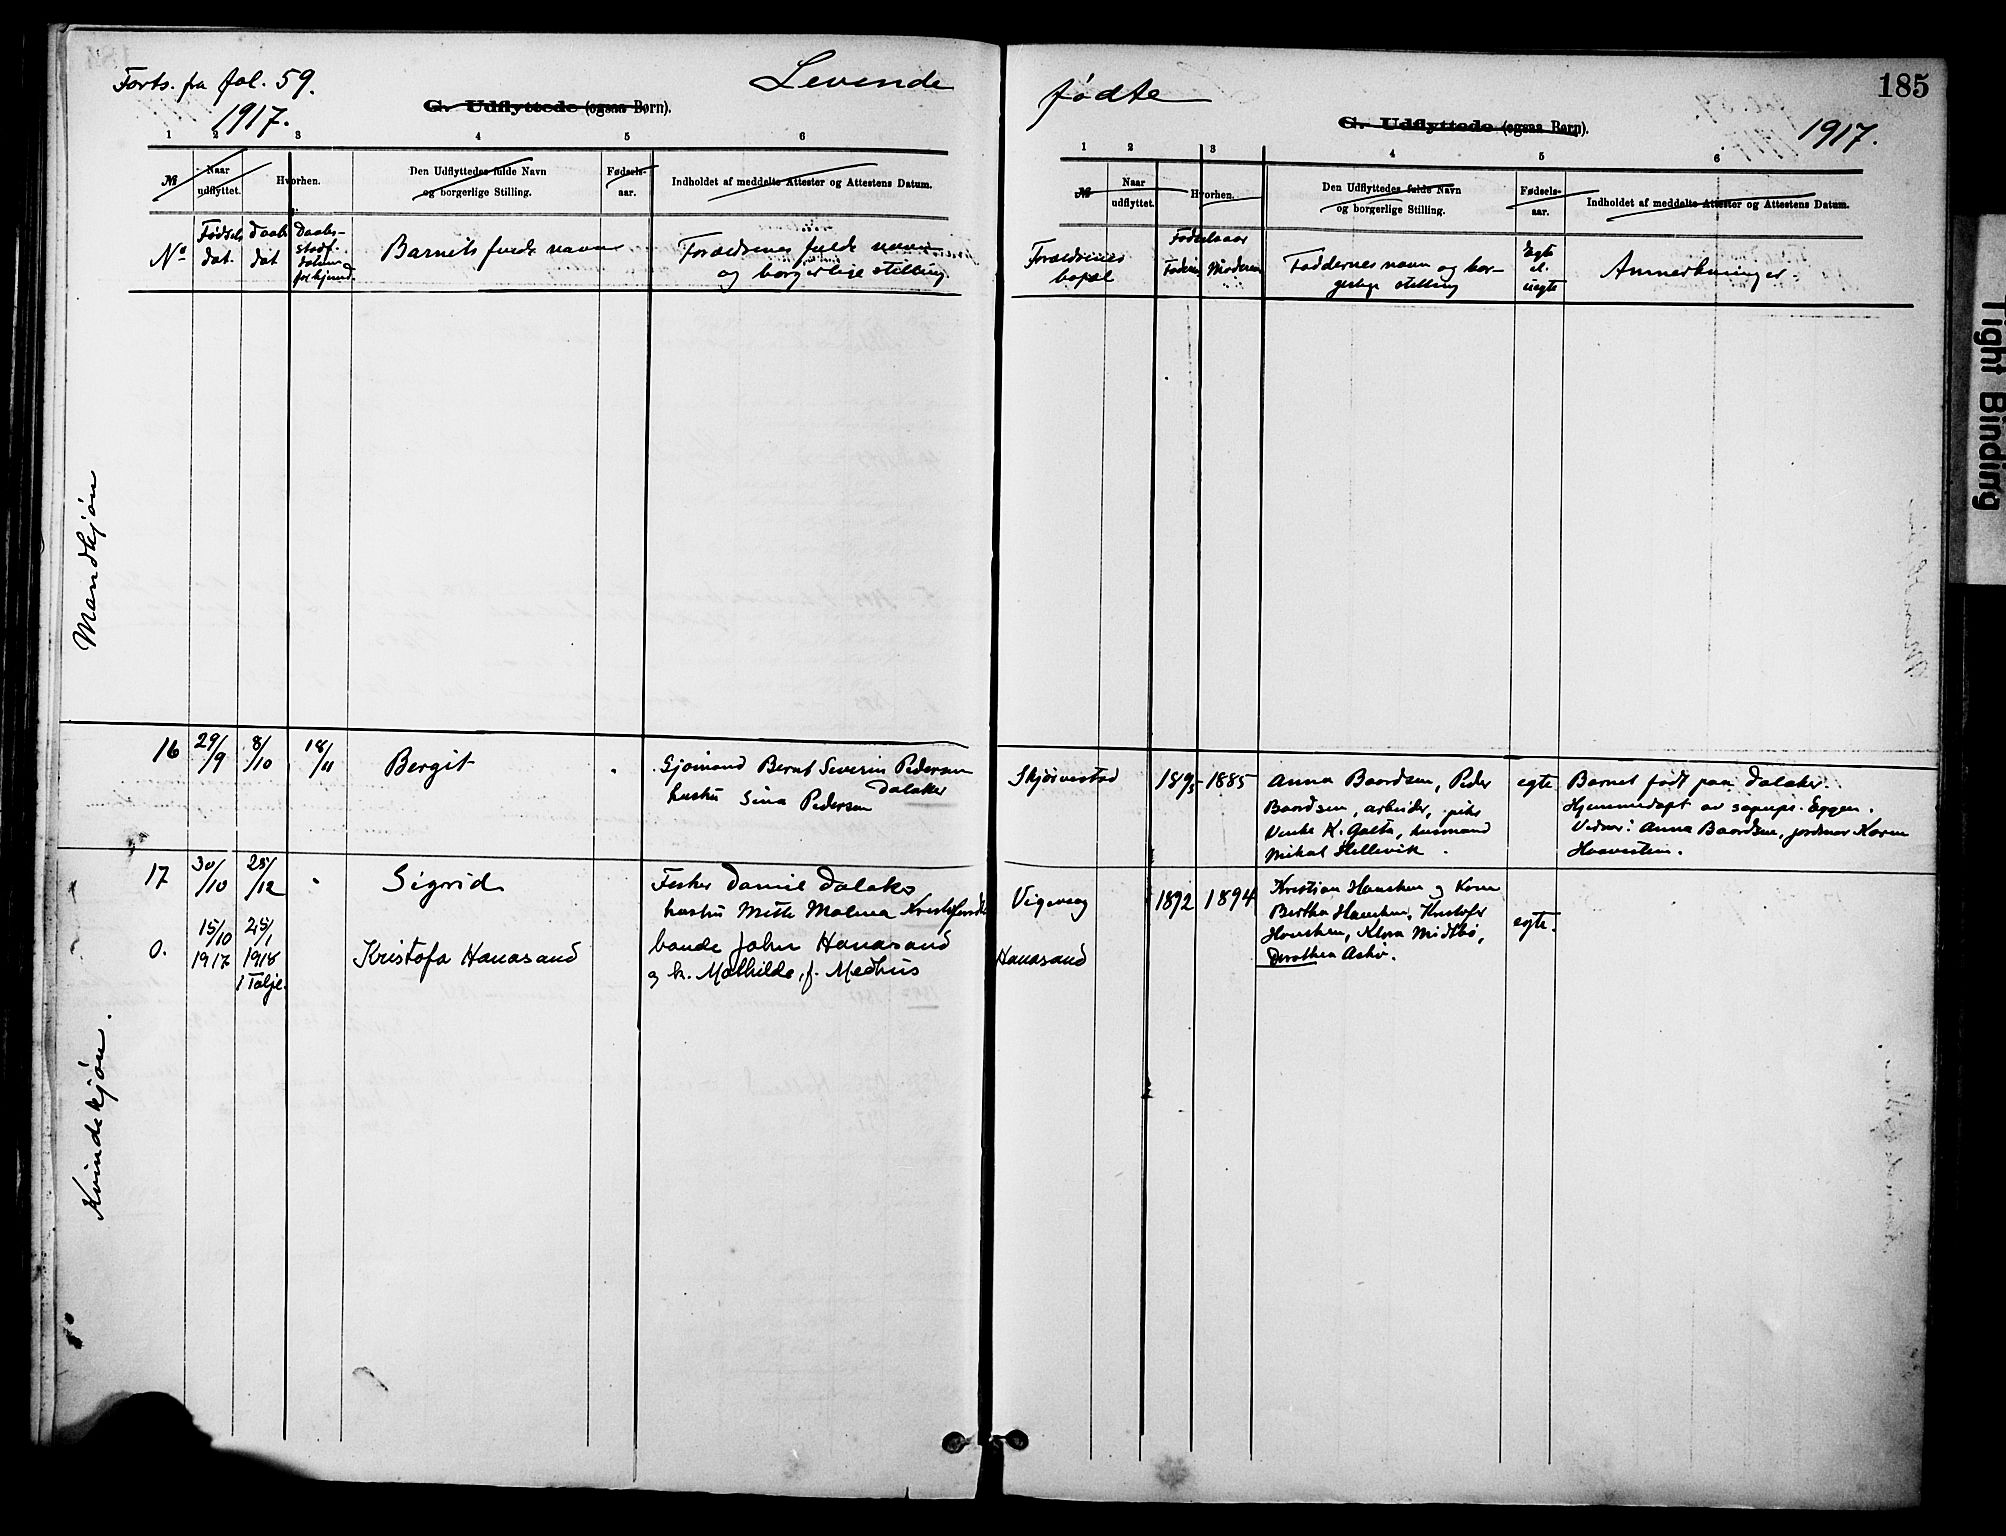 Forts. fra fol. 59.
1917.
Levende
G. Udflyttede (ogsaa Børn).
1 2 3 4 5 6
№
Naar
udflyttet.
Hvorhen.
Den Udflyttedes fulde Navn
og borgerlige Stilling.
Fødsels-
aar.
Indholdet af meddelte Attester og Attestens Datum.
No
Fødsels
dat.
Daab
dat
Daabs-
stadf.
datum
Barnets fulde navn
Forældrenes fulde navn
og borgerlige stilling.
Mandkjøn
16
29/9
8/10
18/11
Bergit
Sjømand Bernt Severin Pedersen
Dalaker
hustru Sina Pedersen
17
30/10
28/12
Sigrid
Fisker Daniel Dalaker
hustru Mette Malena
0.
15/10
1917
25/1
1918
i Talje.
Kristofa Hanasand
bonde John Hanasand
og h. Mathilde, f. Medhus
Kvindekjøn.
fødte
185
G. Udflyttede (ogsaa Børn).
1917.
1 2 3 4 5 6
№
Naar
udflyttet.
Hvorhen.
Den Udflyttedes fulde Navn
og borgerlige Stilling.
Fødsels-
aar.
Indholdet af meddelte Attester og Attestens Datum.
Forældrenes
bopæl
Fødselsaar
Faderens
Moderens
Faddernes navn og bor-
gerlige stilling
Egte
el.
uegte
Anmerkninger.
1895
1885
Anna Baardsen, Peder
Baardsen, arbeider, pike
K. Galta, husmand
Mikal Hellevik.
egte
Barnet født paa Dalaker.
Hjemmedøpt av sognepr. Eggen.
Vidner: Anna Baardsen, jordmor Karen
Vigevaag
1892
1894
Kristian Hausken og Kone
Bertha Hausken, Kristofer
Hausken, Klara Midtbø,
Dorothea Askø.
egte.
Hanasand
Tight Binding